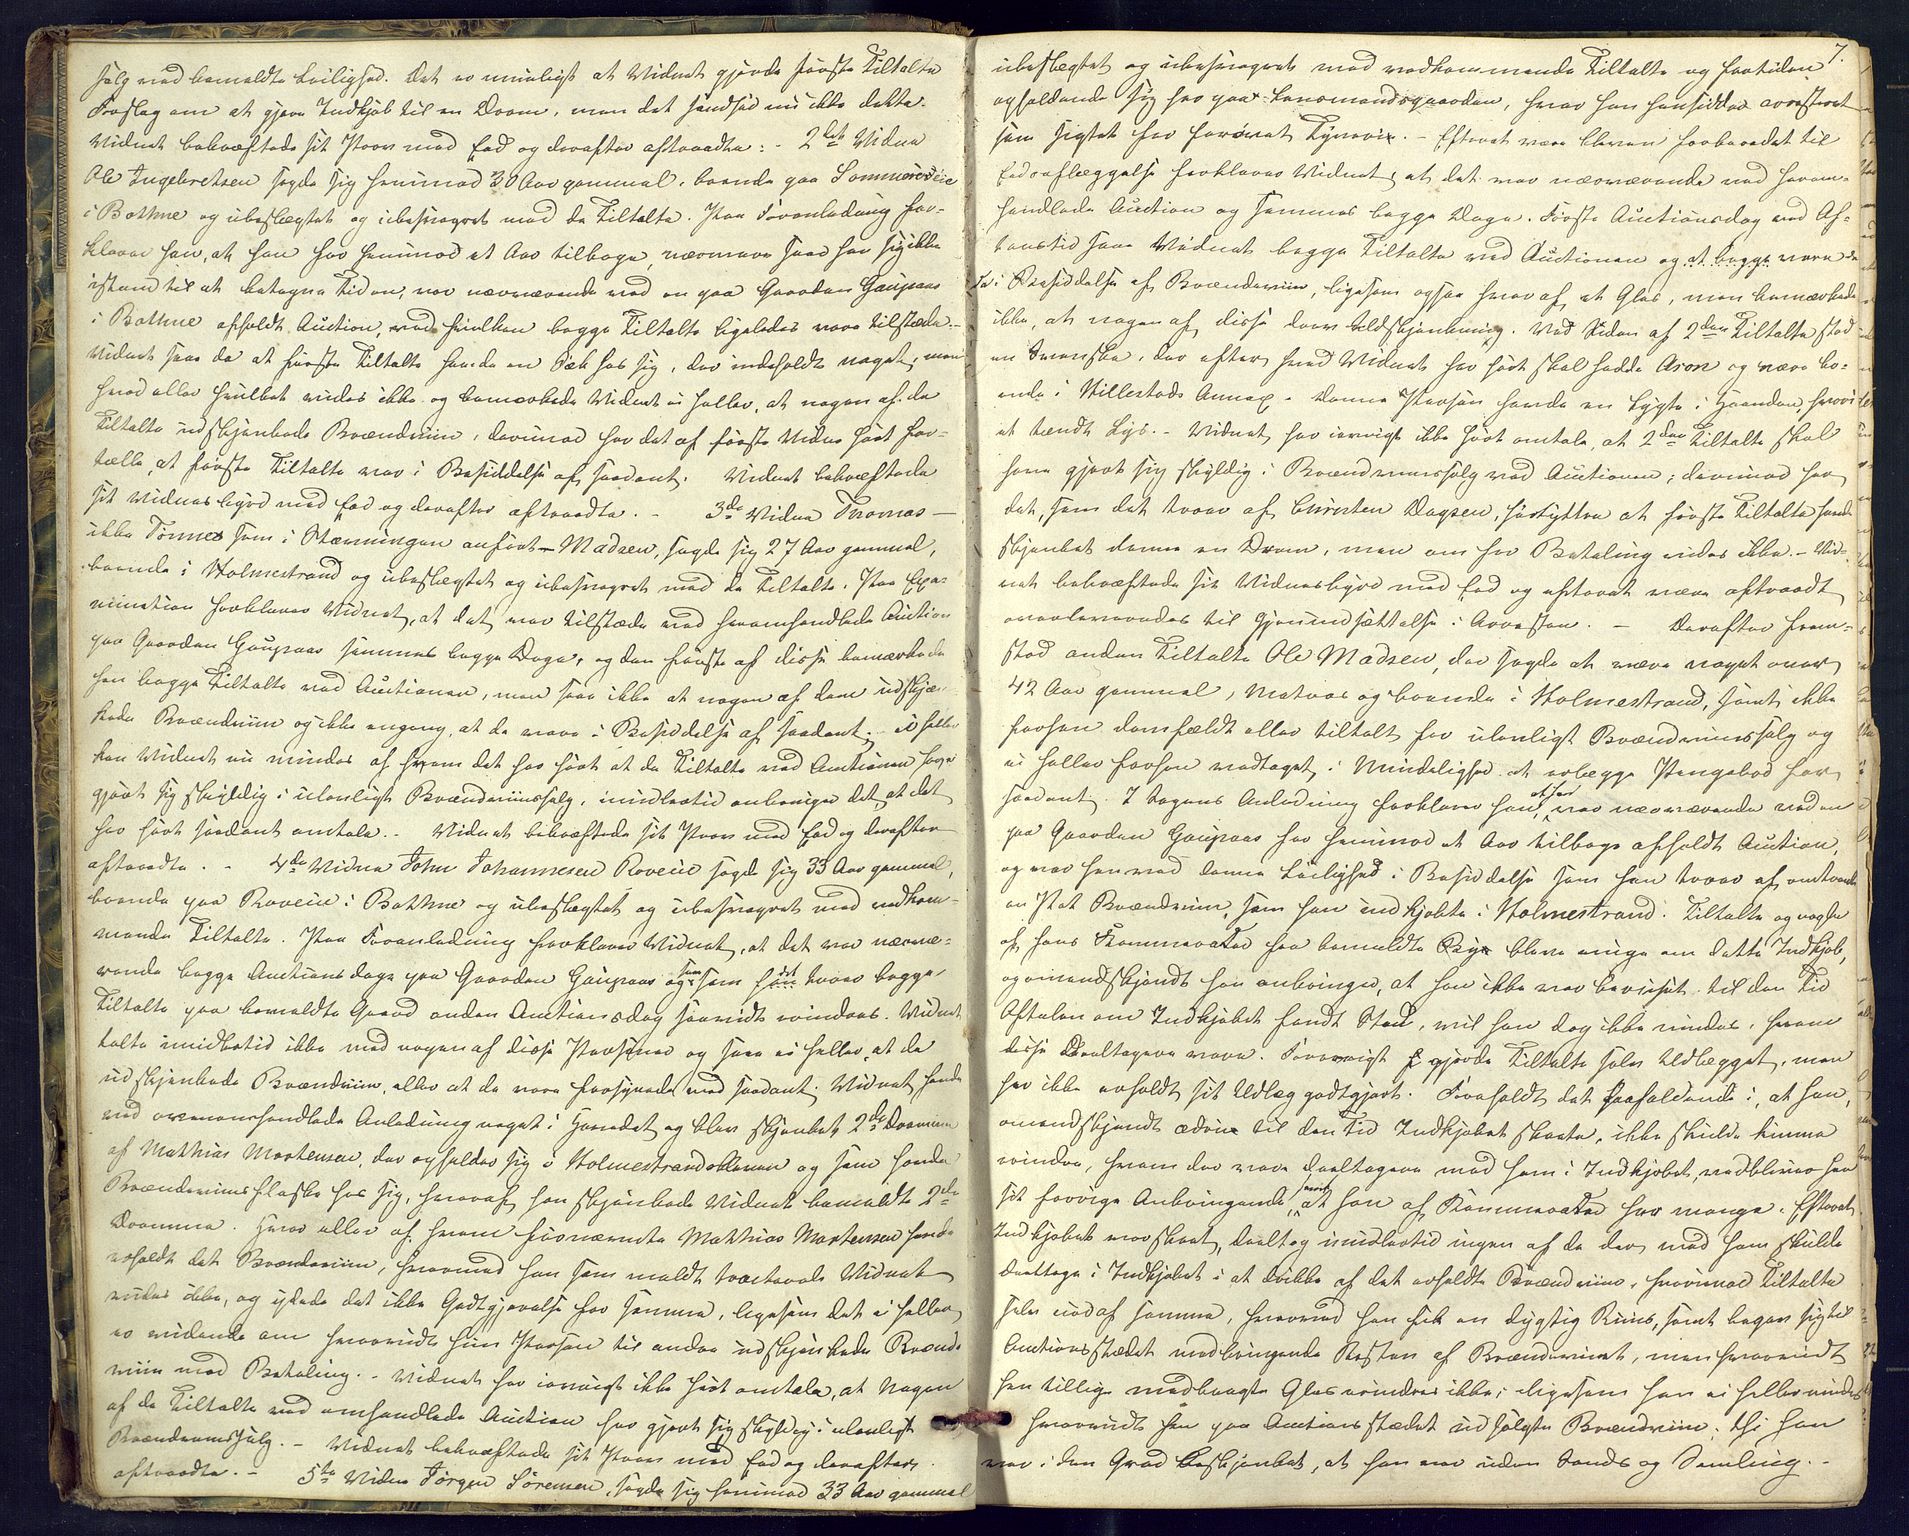 salg ved bemeldte Leilighed. Det er mueligt at Vidnet gjorde første Tiltalte
Forslag om at gjøre Indkjøb til en Dram, men det husker nu ikke dette.
Vidnet bekræftede sit Prov med Eed og derefter aftraadte: - 2det Vidne
Ole Ingebretsen sagde sig henimod 30 Aar gammel, boende paa Sommerseie
i Bothne og ubeslægtet og ubesvogret med de Tiltalte. Paa Foranledning for-
klarer han, at han for henimod et Aar tilbage, nærmere saae han sig ikke
istand til at betegne Tiden, var nærværende ved en paa Gaarden Gaupaas
i Bothne afholdt Auction, ved hvilken begge Tiltalte ligeledes vare tilstæde. -
Vidnet saae da at første Tiltalte havde en Sæk hos sig, der indeholdt noget, men
hvad eller hvilket vides ikke og bemærkede Vidnet ei heller, at nogen af de
Tiltalte udskjænkede Brændeviin, derimod har det af første Vidne hørt for-
tælle, at første Tiltalte var i Besiddelse af saadant. Vidnet bekræftede
sit Vidnesbyrd med Eed og derefter aftraadte. - 3de Vidne Thomas -
ikke Tønnes som i Stævningen anført - Madsen, sagde sig 27 Aar gammel,
boende i Holmestrand og ubeslægtet og ubesvogret med de Tiltalte. Paa Exa-
mination forklarer Vidnet, at det var tilstæde ved heromhandlede Auction
paa Gaarden Gaupaas sammes begge Dage, og den første af disse bemærkede
han begge Tiltalte ved Auctionen, men saae ikke at nogen af dem udskjæn-
kede Brændeviin og ikke engang, at de vare i Besiddelse af saadant; - ei heller
kan Vidnet nu mindes af hvem det har hørt at de Tiltalte ved Auctionen havde
gjort sig skyldig i ulovligt Brændeviinssalg, imidlertid anbringer det, at det
har hørt saadant omtale. - Vidnet bekræftede sit Prov med Eed og derefter
aftraadte. - 4de Vidne John Johannesen Roveiie sagde sig 33 Aar gammel,
boende paa Roveiie i Bothne og ubeslægtet og ubesvogret med vedkom-
mende Tiltalte. Paa Foranledning forklarer Vidnet, at det var nærvæ-
rende begge Auctionsdage paa Gaarden Gaupaas og saae som det troer begge
Tiltalte paa bemeldte Gaard anden Auctionsdag saavidt erindres. Vidnet
talte imidlertid ikke med nogen af disse Personer og saae ei heller, at de
udskjænkede Brændeviin, eller at de vare forsynede med saadant. Vidnet havde
ved ovenomhandlede Anledning noget i Hovedet og blev skjænket 2de Dramme
af Mathias Mortensen, der opholder sig i Holmestrandskanten og som havde
Brændeviinsflaske hos sig, hvoraf han skjænkede Vidnet bemeldte 2de
Dramme. Hvor eller af hvem førnævnte Mathias Mortensen havde
erholdt det Brændeviin, hvormed han som meldt tracterede Vidnet
vides ikke, og ydede det ikke Godtgjørelse for samme, ligesom det ei heller
er vidende om hvorvidt hiin Person til andre udskjænkede Brænde-
viin mod Betaling. - Vidnet har iøvrigt ikke hørt omtale, at Nogen
af de Tiltalte ved omhandlede Auction har gjort sig skyldig i ulovligt
Brændeviinssalg. - Vidnet bekræftede sit Prov med Eed og derefter
aftraadte. - 5te Vidne Jørgen Sørensen, sagde sig henimod 33 Aar gammel
7.
ubeslægtet og ubesvogret med vedkommende Tiltalte og fortiden
opholdende sig her paa Lensmandsgaarden, hvor han hensidder arresteret
som sigtet for forøvet Tyverie. - Efterat være bleven forberedet til
Eedsaflæggelse forklarer Vidnet, at det var nærværende ved herom-
handlede Auction og sammes begge Dage. Første Auctionsdag ved Af-
tenstid saae Vidnet begge Tiltalte ved Auctionen og at begge vare da
i Besiddelse af Brændeviin, ligesom ogsaa hver af et Glas, men bemærkede
ikke, at nogen af disse drev Udskjænkning. Ved Siden af 2den Tiltalte stod
en Svenske, der efter hvad Vidnet har hørt skal hedde Aron og være bo-
ende i Hillestads Annex. - Denne Person havde en Lygte i Haanden, hvori
et tændt Lys. - Vidnet har iøvrigt ikke hørt omtale, at 2den Tiltalte skal
have gjort sig skyldig i Brændeviinssalg ved Auctionen; derimod har
det, som det troer af Christen Dagsen, hørt yttre at første Tiltalte havde
skjænket denne en Dram, men om for Betaling vides ikke. - Vid-
net bekræftede sit Vidnesbyrd med Eed og efterat være aftraadt
overleveredes til Gjenindsættelse i Arresten. - Derefter frem-
stod anden Tiltalte Ole Madsen, der sagde at være noget over
42 Aar gammel, Matros og boende i Holmestrand, samt ikke
forhen domfældt eller tiltalt for ulovligt Brændeviinssalg og
ei heller forhen vedtaget i Mindelighed at erlægge Pengebod for
saadant. I Sagens Anledning forklarer han, at han var nærværende ved en
paa Gaarden Gaupaas for henimod et Aar tilbage afholdt Auction,
og var han ved denne Leilighed i Besiddelse som han troer af omtrent
en Pot Brændeviin, som han indkjøbte i Holmestrand. Tiltalte og nogle
af hans Kammerater fra bemeldte By bleve enige om dette Indkjøb,
og omendskjøndt han anbringer, at han ikke var beruset til den Tid
Aftalen om Indkjøbet fandt Sted, vil han dog ikke mindes, hvem
disse Deeltagere vare. Forøvrigt gjorde Tiltalte selv Udlægget, men
har ikke erholdt sit Udlæg godtgjort. Foreholdt det paafaldende i, at han,
omendskjøndt ædru til den Tid Indkjøbet skeete, ikke skulde kunne
erindre, hvem der vare Deeltagere med ham i Indkjøbet, vedbliver han
sit forrige Anbringende samt at han af Kammerater har mange. Efterat
Indkjøbet var skeet, deeltog imidlertid ingen af de der med ham skulde
deeltage i Indkjøbet i at drikke af det erholdte Brændeviin, hvorimod Tiltalte
selv nød af samme, hvorved han fik en dygtig Ruus, samt begav sig til
Auctionsstædet medbringende Resten af Brændevinet, men hvorvidt
han tillige medbragte Glas erindres ikke; ligesom han ei heller mindes
hvorvidt han paa Auctionsstædet udsolgte Brændeviin; thi han
var i den Grad beskjænket, at han var uden Sands og Samling. -